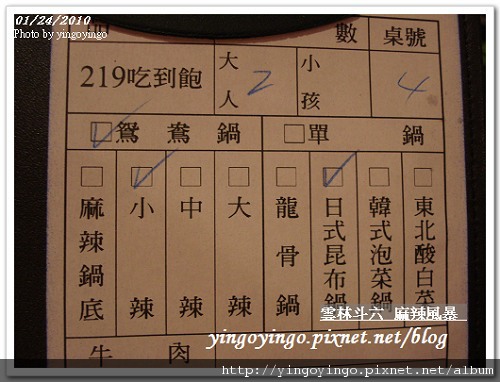 01/24/2010
Photo by yingoyingo
數 桌號
219吃到飽 大人 2 小孩 4
鴛鴦鍋 單鍋
麻辣鍋底
小辣
中辣
大辣
龍骨鍋
日式昆布鍋
韓式泡菜鍋
東北酸白菜
牛肉
雲林斗六 麻辣風暴
yingoyingo.pixnet.net/blog
http://yingoyingo.pixnet.net/album